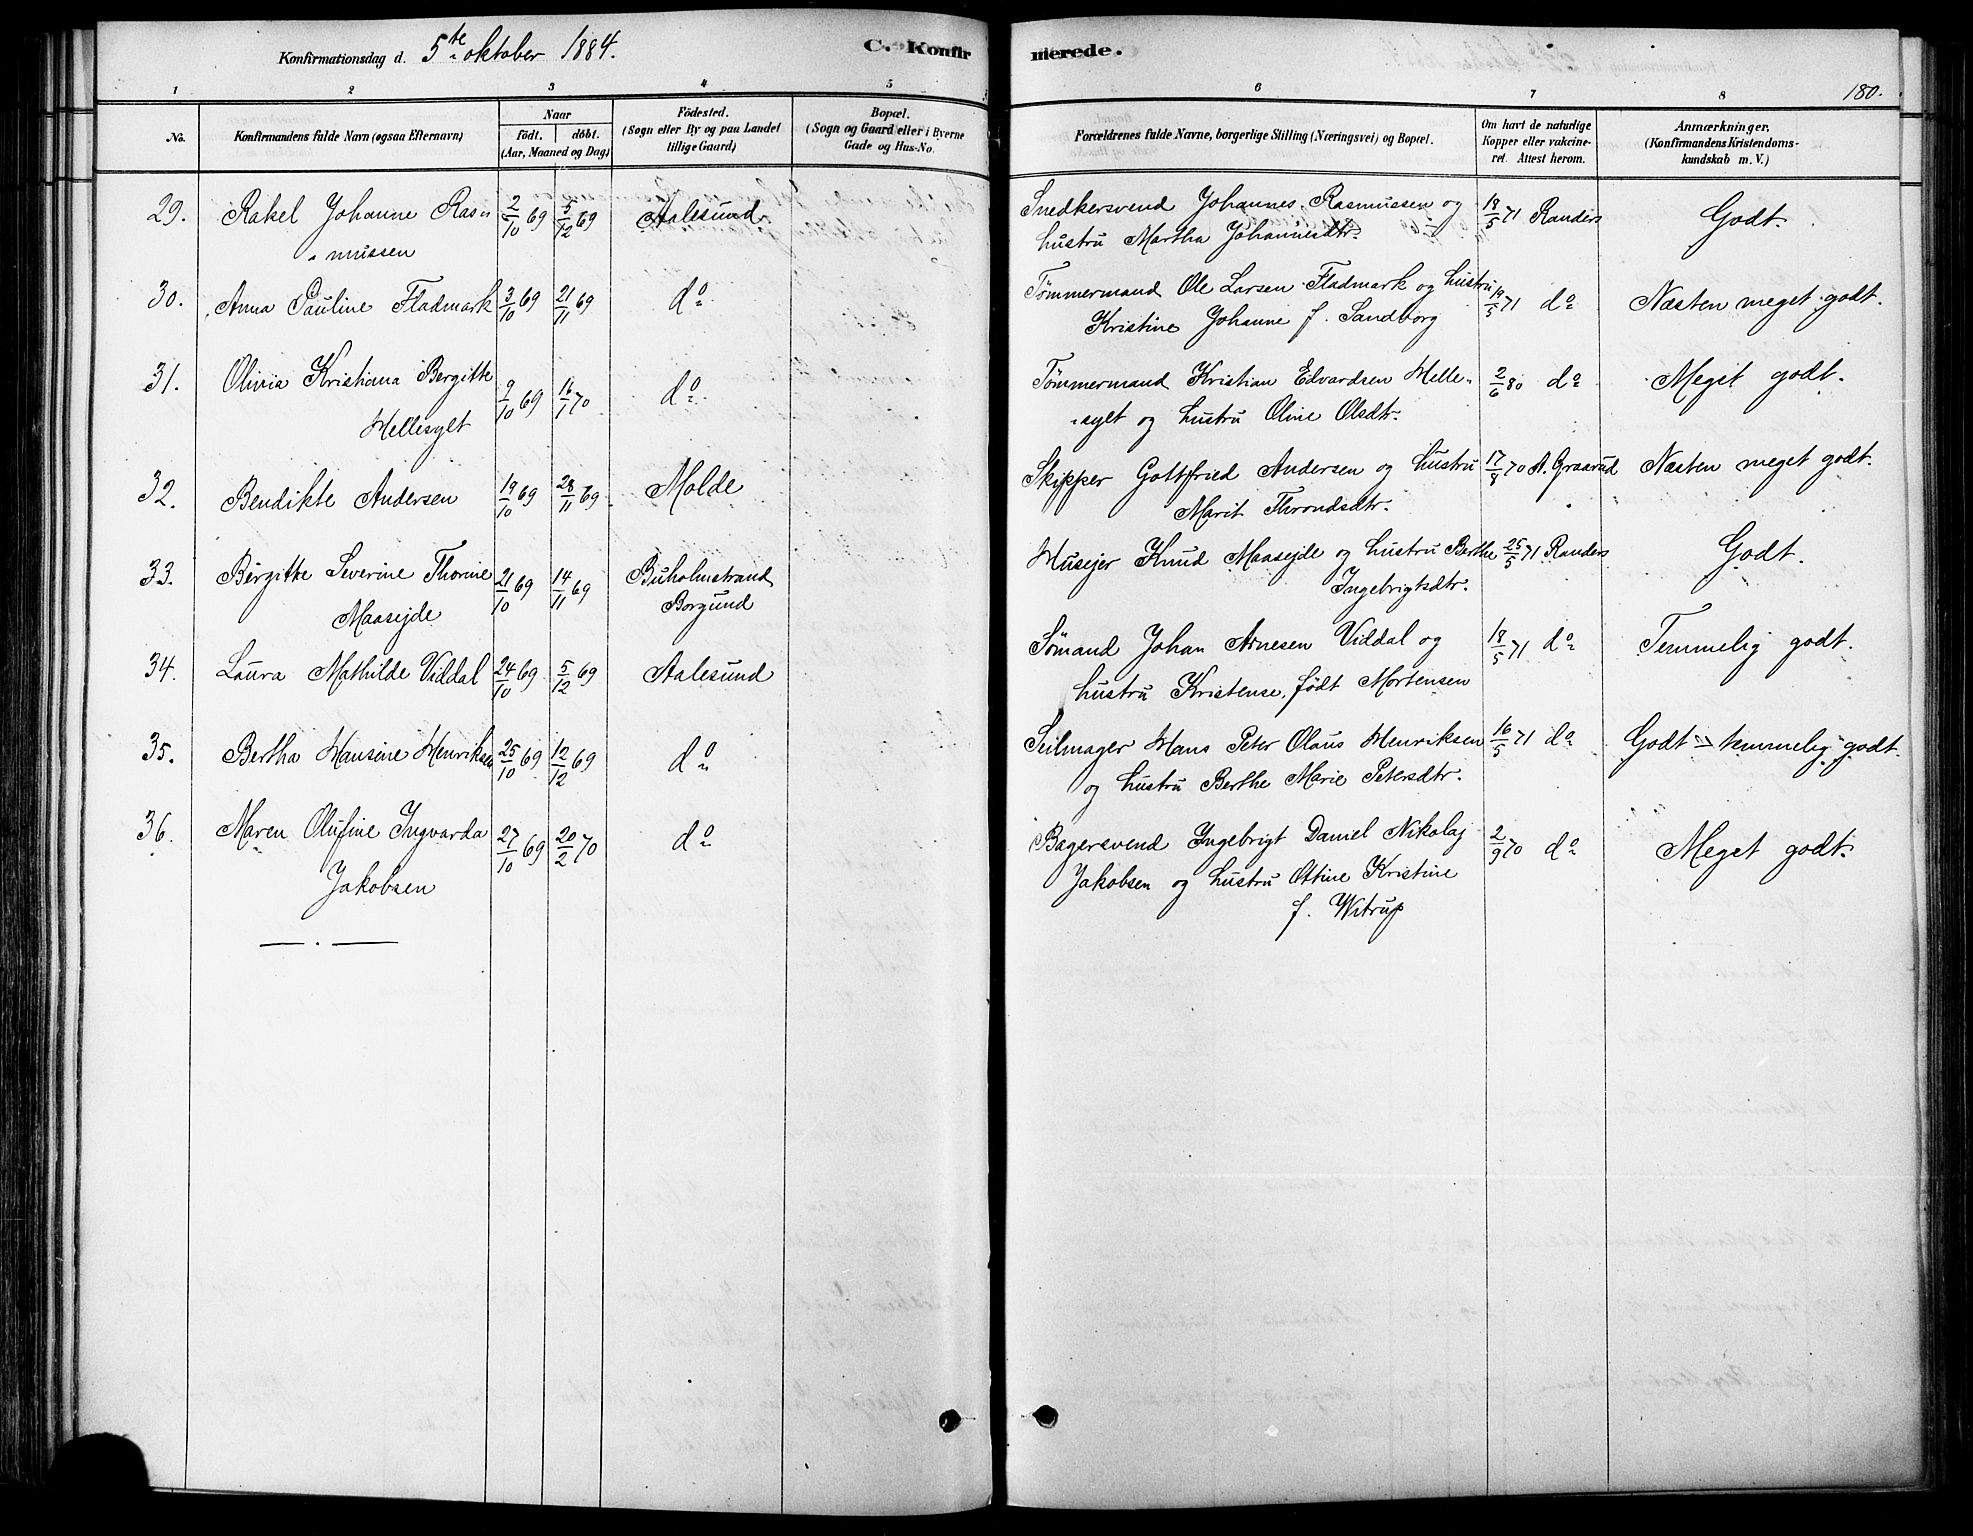 Konfirmationsdag d. 5te oktober 1884.
C. Konfirmerede.
180.
1 2 3 4 5 6 7 8
No. Konfirmandens fulde Navn (ogsaa Efternavn) Naar födt. döbt. (Aar, Maaned og Dag) Födested. (Sogn eller By og paa Landet tillige Gaard) Bopæl. (Sogn og Gaard eller i Byerne Gade og Hus-No. Forældrenes fulde Navne, borgerlige Stilling (Næringsvei) og Bopæl. Om havt de naturlige Kopper eller vakcineret. Attest herom. Anmærkninger. (Konfirmandens Kristendomskundskab m. V.)
29. Rakel Johanne Ras- 2/10 69 5/12 69 Aalesund Snedkersvend Johannes Rasmussen og 18/5 71 Randers Godt.
mussen hustru Martha Johannesdtr.
30. Anna Pauline Fladmark 3/10 69 21/11 69 do Tømmermand Ole Larsen Fladmark og hustru 19/5 71 do Næsten meget godt.
Kristine Johanne f. Sandborg
31. Olivia Kristiana Bergitte 9/10 69 16/1 70 do Tømmermand Kristian Edvardsen Helle- 2/6 80 do Meget godt.
Hellesylt sylt og hustru Oline Olsdtr.
32. Bendikte Andersen 19/10 69 28/11 69 Molde Skipper Gottfried Andersen og hustru 17/8 70 A. Graarud Næsten meget godt.
Marit Throndsdtr.
33. Bergitte Severine Thorine 21/10 69 14/11 69 Buholmstrand Husejer Knud Maasejde og hustru Berthe 25/5 71 Randers Godt.
Maasejde Borgund Ingebrigtsdtr.
34. Laura Mathilde Viddal 24/10 69 5/12 69 Aalesund Sømand Johan Arnesen Viddal og 18/5 71 do Temmelig godt.
hustru Kristense, født Mortensen
35. Bertha Hansine Henriksen 25/10 69 12/12 69 do Seilmager Hans Peter Olaus Henriksen 16/5 71 do Godt - temmelig godt.
og hustru Berthe Marie Petersdtr.
36. Maren Olufine Ingvarda 27/10 69 20/2 70 do Bagersvend Ingebrigt Daniel Nikolaj 2/9 70 do Meget godt.
Jakobsen Jakobsen og hustru Ottine Kristine
f. Witrup